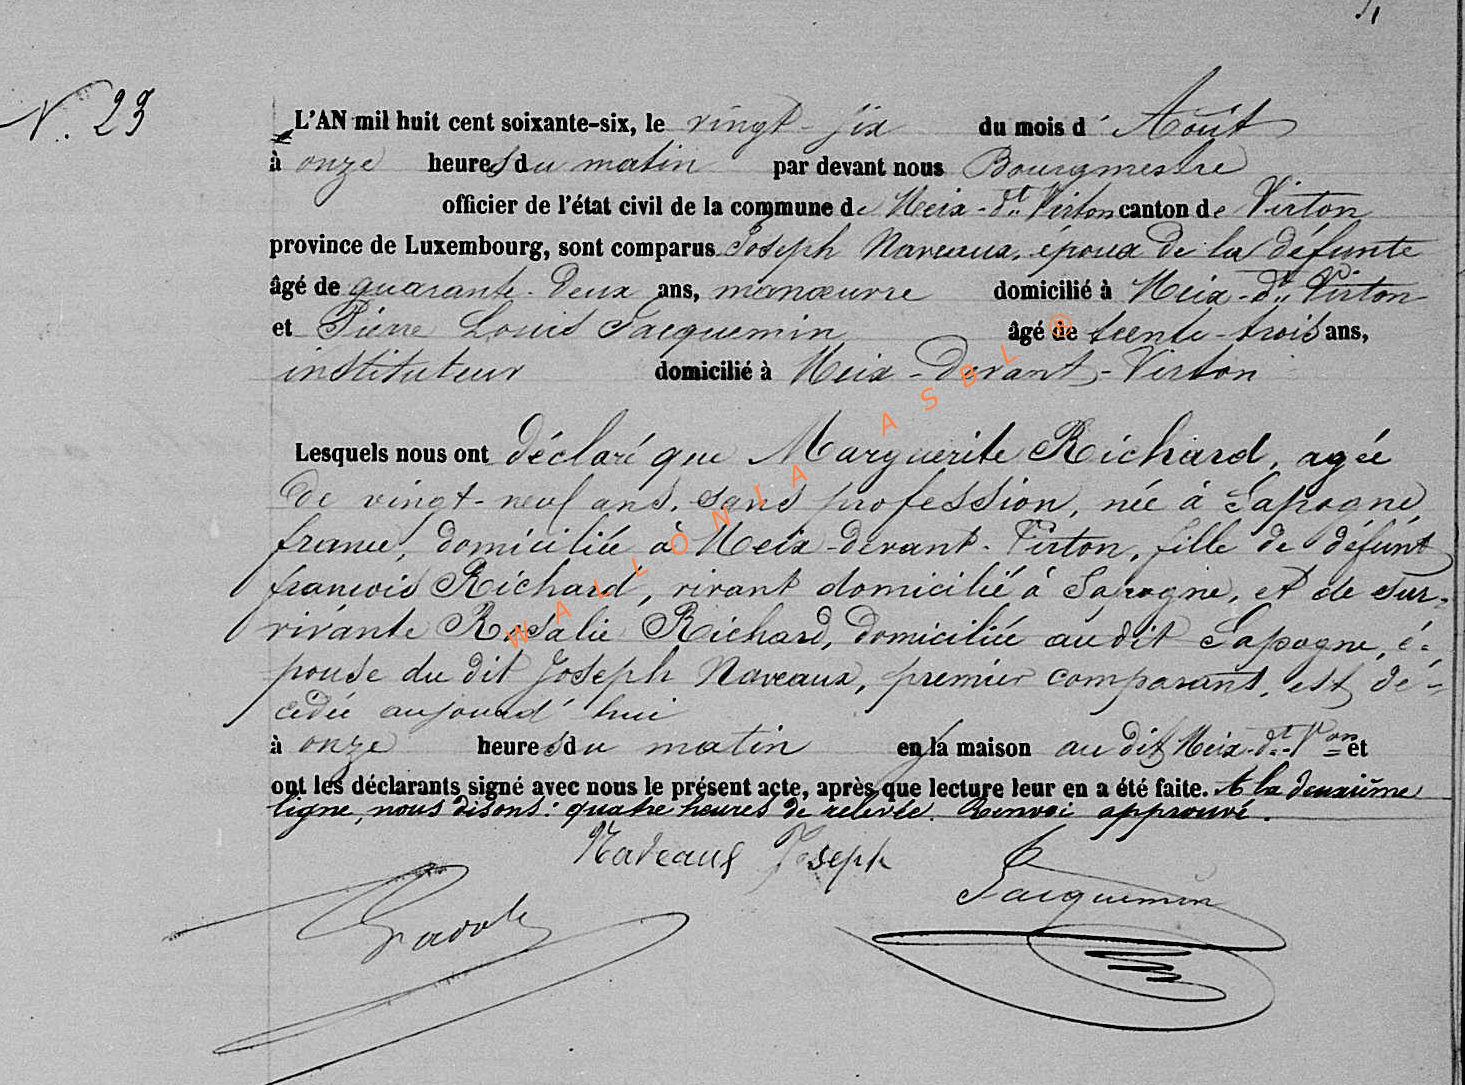 N. 23
L'AN mil huit cent soixante-six, le vingt-six du mois d' Août
à onze heures du matin par devant nous Bourgmestre
officier de l'état civil de la commune de Meix-dt Virton canton de Virton
province de Luxembourg, sont comparus Joseph Naveaux, époux de la défunte
âgé de quarante-deux ans, manœuvre domicilié à Meix-dt Virton
et Pierre Louis Jacquemin âgé de trente-trois ans,
instituteur domicilié à Meix-Devant-Virton
Lesquels nous ont déclaré que Marguerite Richard, agée
de vingt-neuf ans, sans profession, née à Sapogne
france, domiciliée à Meix-devant-Virton, fille de défunt
françois Richard, vivant domicilié à Sapogne, et de sur-
vivante Rosalie Richard, domiciliée au dit Sapogne, é-
pouse du dit Joseph Naveaux, premier comparant, est dé-
cédée aujourd'hui
à onze heures du matin en la maison au dit Meix-dt-Von et
ont les déclarants signé avec nous le présent acte, après que lecture leur en a été faite. A la deuxième
ligne, nous disons: quatre heures de relevée. Renvoi approuvé.
Naveaux Joseph
Jacquemin
WALLONIA ASBL ©